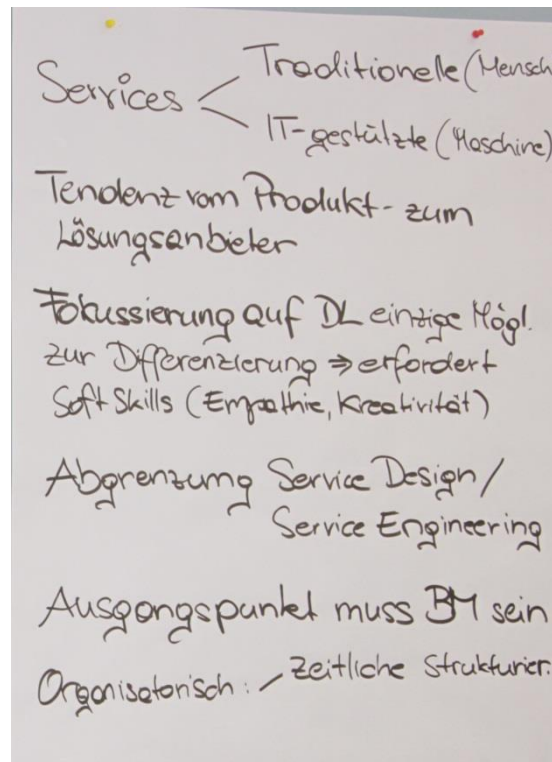 Services < Traditionelle (Mensch
IT-gestützte (Maschine)
Tendenz vom Produkt- zum
Lösungsanbieter
Fokussierung auf DL einzige Mögl.
zur Differenzierung ⇒ erfordert
Soft Skills (Empathie, Kreativität)
Abgrenzung Service Design /
Service Engineering
Ausgangspunkt muss BM sein
Organisatorisch: / zeitliche Strukturier.